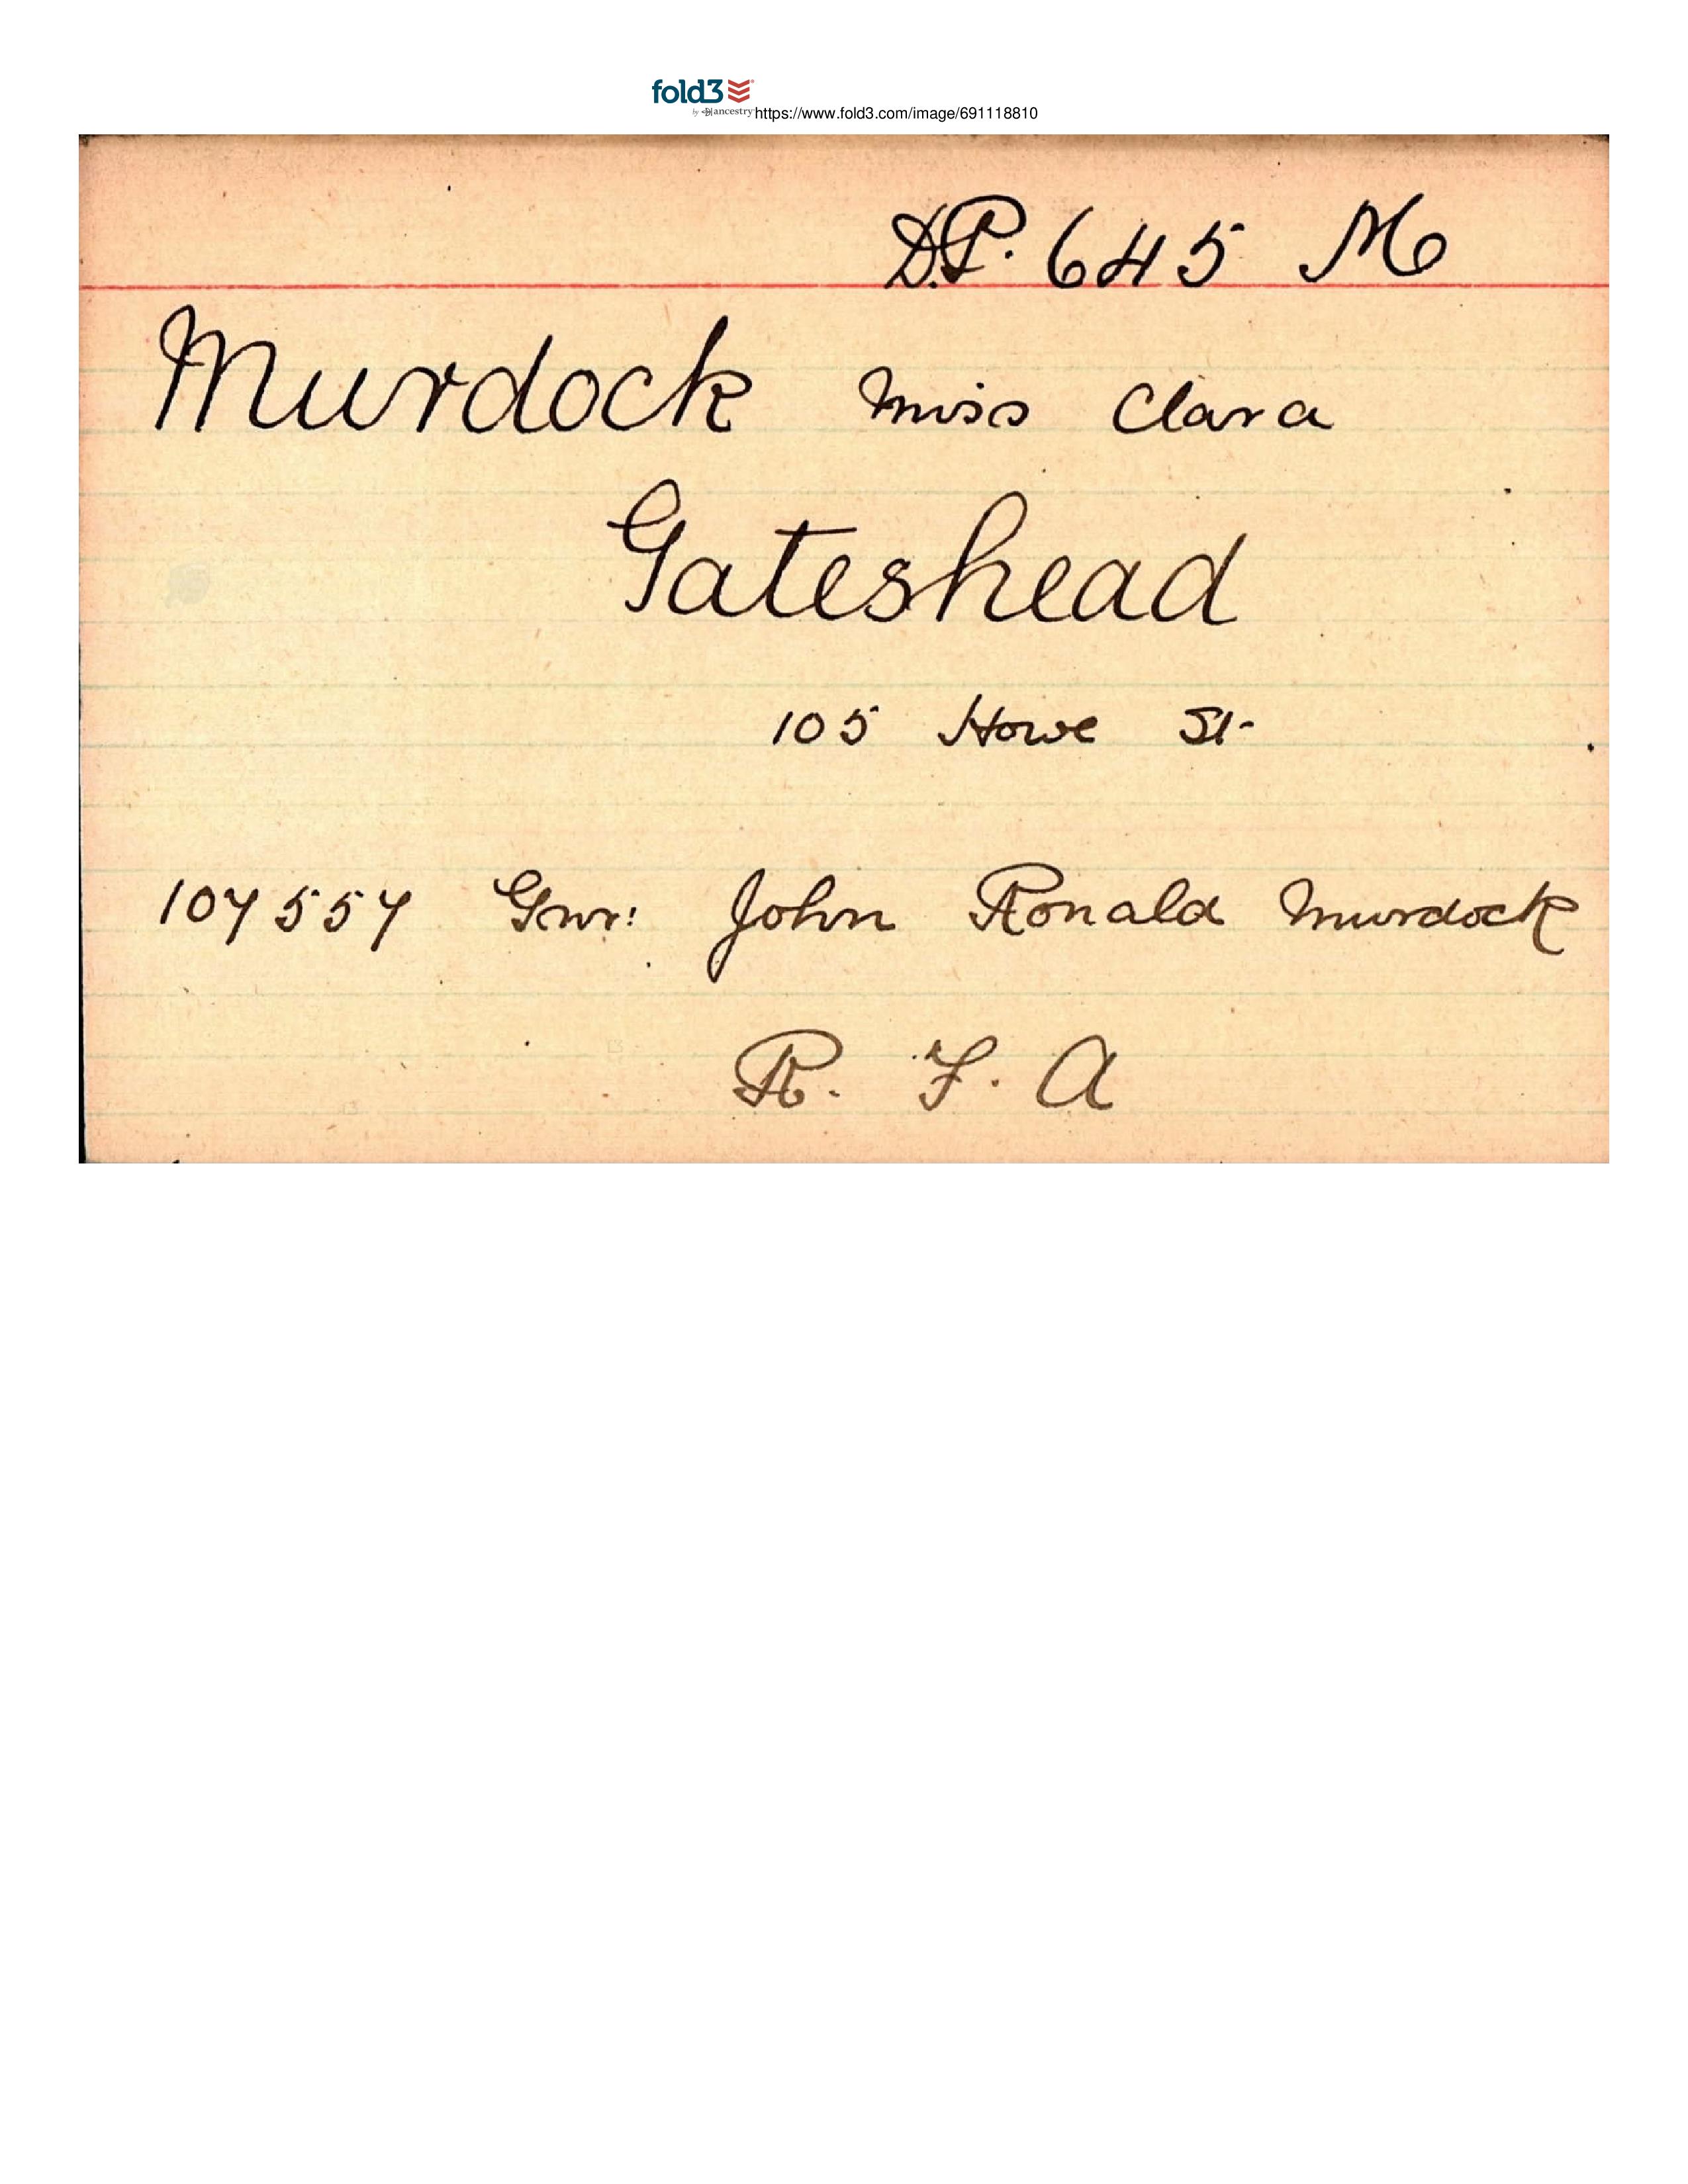 fold3
by ancestry https://www.fold3.com/image/691118810
D.P. 645 M
Murdock Miss Clara
Gateshead
105 Howe St-
107557 Gnr: John Ronald Murdock
R. F. A